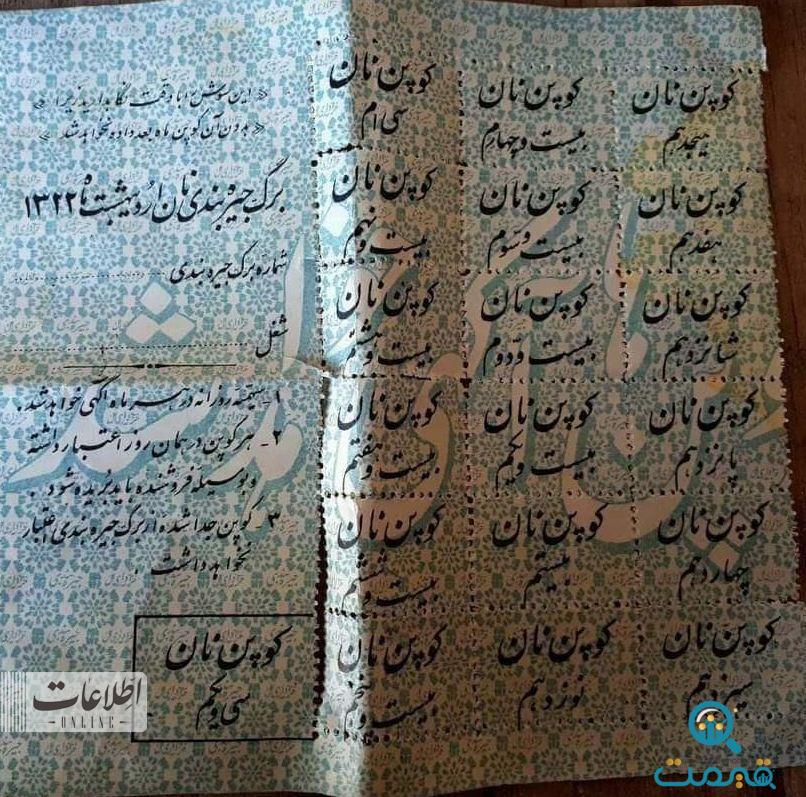 « این سوش را با دقت نگاه دارید زیرا »
« بدون آن کوپن ماه بعد داده نخواهد شد »
برگ جیره بندی نان اردیبهشت ماه ۱۳۲۲
شماره برگ جیره بندی
شغل
۱ - سهمیه روزانه در هر ماه آگهی خواهد شد .
۲ - هر کوپن در همان روز اعتبار داشته
و بوسیله فروشنده باید بریده شود .
۳ - کوپن جدا شده از برگ جیره بندی اعتبار
نخواهد داشت .
کوپن نان
سی و یکم
کوپن نان
سی ام
کوپن نان
بیست و چهارم
کوپن نان
هیجدهم
کوپن نان
بیست و نهم
کوپن نان
بیست و سوم
کوپن نان
هفدهم
کوپن نان
بیست و هشتم
کوپن نان
بیست و دوم
کوپن نان
شانزدهم
کوپن نان
بیست و هفتم
کوپن نان
بیست و یکم
کوپن نان
پانزدهم
کوپن نان
بیست و ششم
کوپن نان
بیستم
کوپن نان
چهاردهم
کوپن نان
بیست و پنجم
کوپن نان
نوزدهم
کوپن نان
سیزدهم
اطلاعات
ONLINE
قیمت